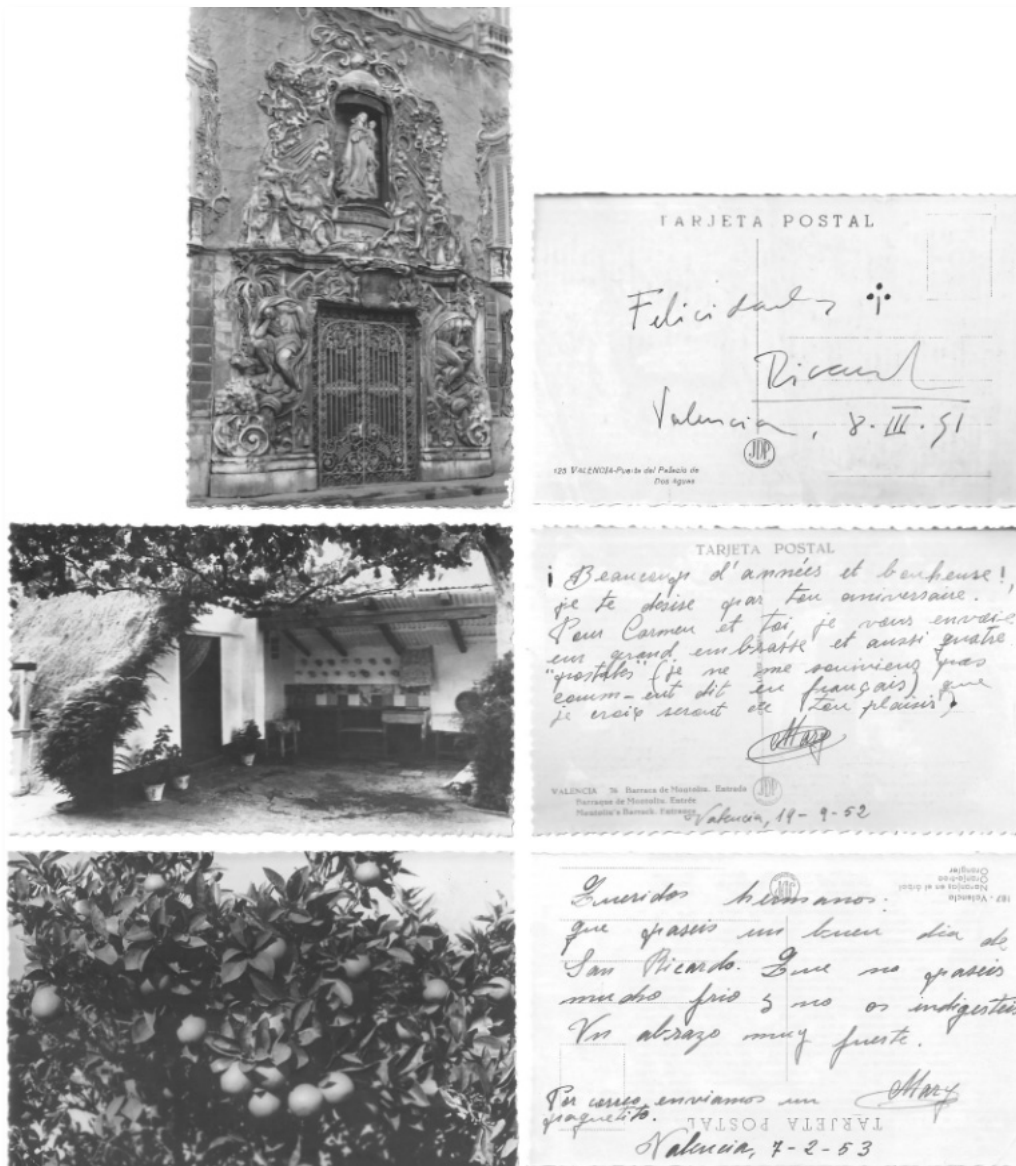 TARJETA POSTAL
Felicidades
Ricard
Valencia, 8-III-51
JDP
125 VALENCIA-Puerta del Palacio de
Dos Aguas
TARJETA POSTAL
¡Beaucoup d'années et benheuse!,
je te désise par ton aniversaire.
Pour Carmen et toi, je vous envoie
un grand embrasse et aussi quatre
"postales" (je ne me souviens pas
comm-ent dit en français) que
je crois seront de ton plaisir
Mary
VALENCIA 76 Barraca de Montoliu. Entrada
Barraque de Montoliu. Entrée
Montoliu's Barrack. Entrance
JDP
Valencia, 19-9-52
187 - Valencia
Naranjas en el árbol
Orange-tree
Orangier
JDP
Queridos hermanos:
que paseis un buen dia de
San Ricardo. Que no paseis
mucho frio y no os indigesteis
Un abrazo muy fuerte.
Mary
Por correo enviamos un
paquetito.
TARJETA POSTAL
Valencia, 7-2-53